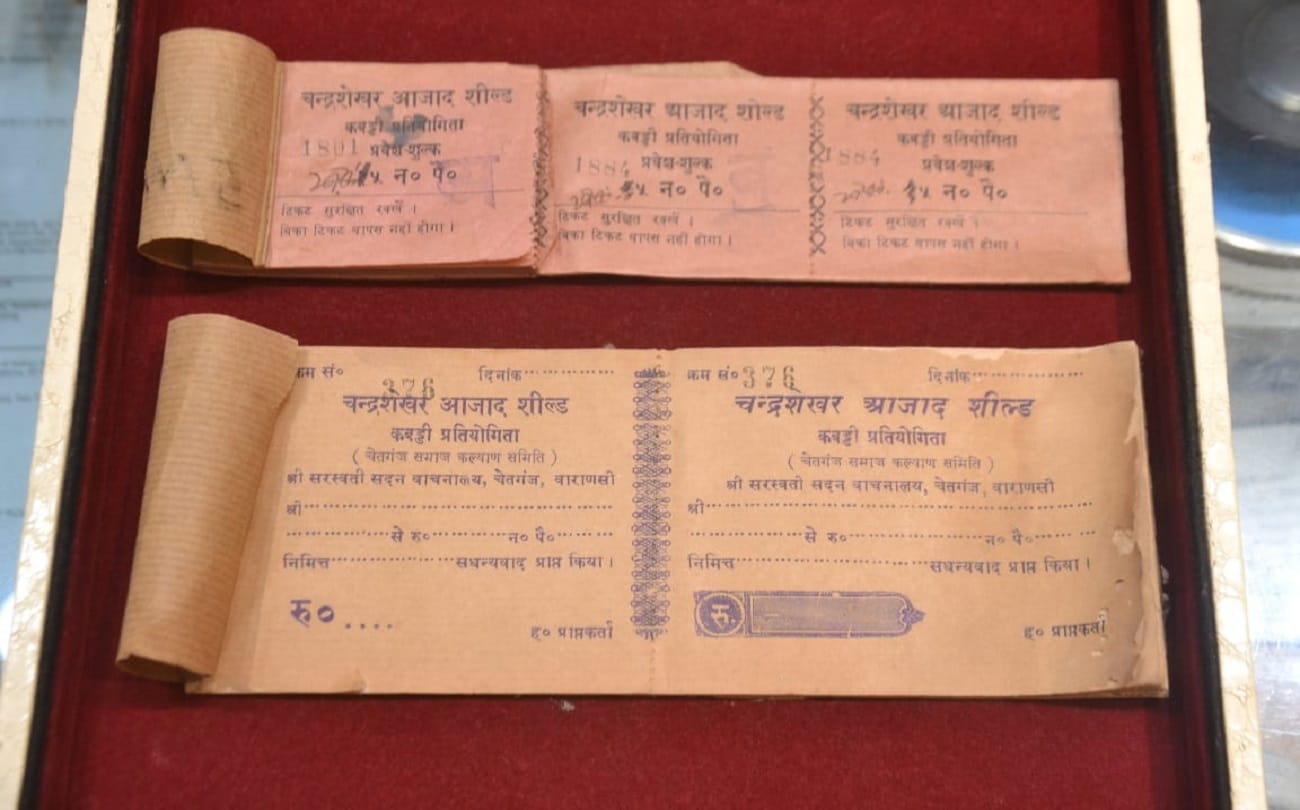 चन्द्रशेखर आजाद शील्ड
कबड्डी प्रतियोगिता
1801 प्रवेश-शुल्क
१५ न० पै०
टिकट सुरक्षित रक्खें ।
बिका टिकट वापस नहीं होगा ।
चन्द्रशेखर आजाद शील्ड
कबड्डी प्रतियोगिता
1884 प्रवेश-शुल्क
१५ न० पै०
टिकट सुरक्षित रक्खें ।
बिका टिकट वापस नहीं होगा ।
चन्द्रशेखर आजाद शील्ड
कबड्डी प्रतियोगिता
1884 प्रवेश-शुल्क
१५ न० पै०
टिकट सुरक्षित रक्खें ।
बिका टिकट वापस नहीं होगा ।
क्रम सं० 376 दिनांक
चन्द्रशेखर आजाद शील्ड
कबड्डी प्रतियोगिता
( चेतगंज समाज कल्याण समिति )
श्री सरस्वती सदन वाचनालय, चेतगंज, वाराणसी
श्री
से रु० न० पै०
निमित्त सधन्यवाद प्राप्त किया ।
रु०
ह० प्राप्तकर्ता
क्रम सं० 376 दिनांक
चन्द्रशेखर आजाद शील्ड
कबड्डी प्रतियोगिता
( चेतगंज समाज कल्याण समिति )
श्री सरस्वती सदन वाचनालय, चेतगंज, वाराणसी
श्री
से रु० न० पै०
निमित्त सधन्यवाद प्राप्त किया ।
रु.
ह० प्राप्तकर्ता